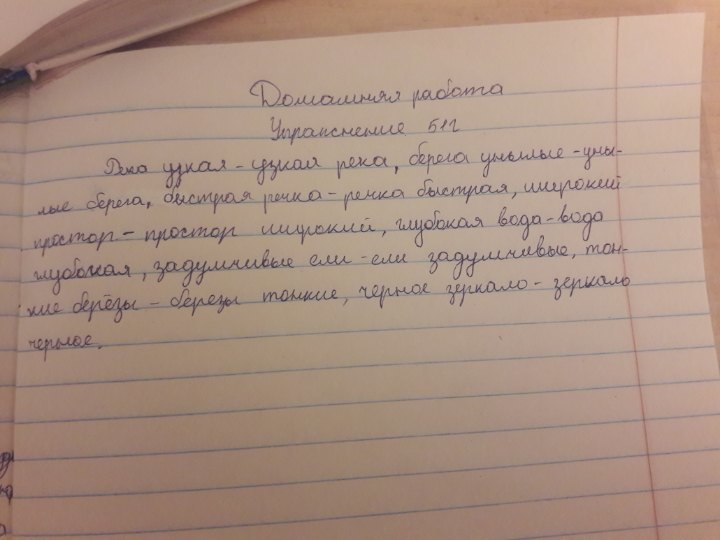 Домашняя работа
Упражнение 512
Река узкая - узкая река, берега унылые - уны-
лые берега, быстрая речка - речка быстрая, широкий
простор - простор широкий, глубокая вода - вода
глубокая, задумчивые ели - ели задумчивые, тон-
кие берёзы - березы тонкие, черное зеркало - зеркало
черное.